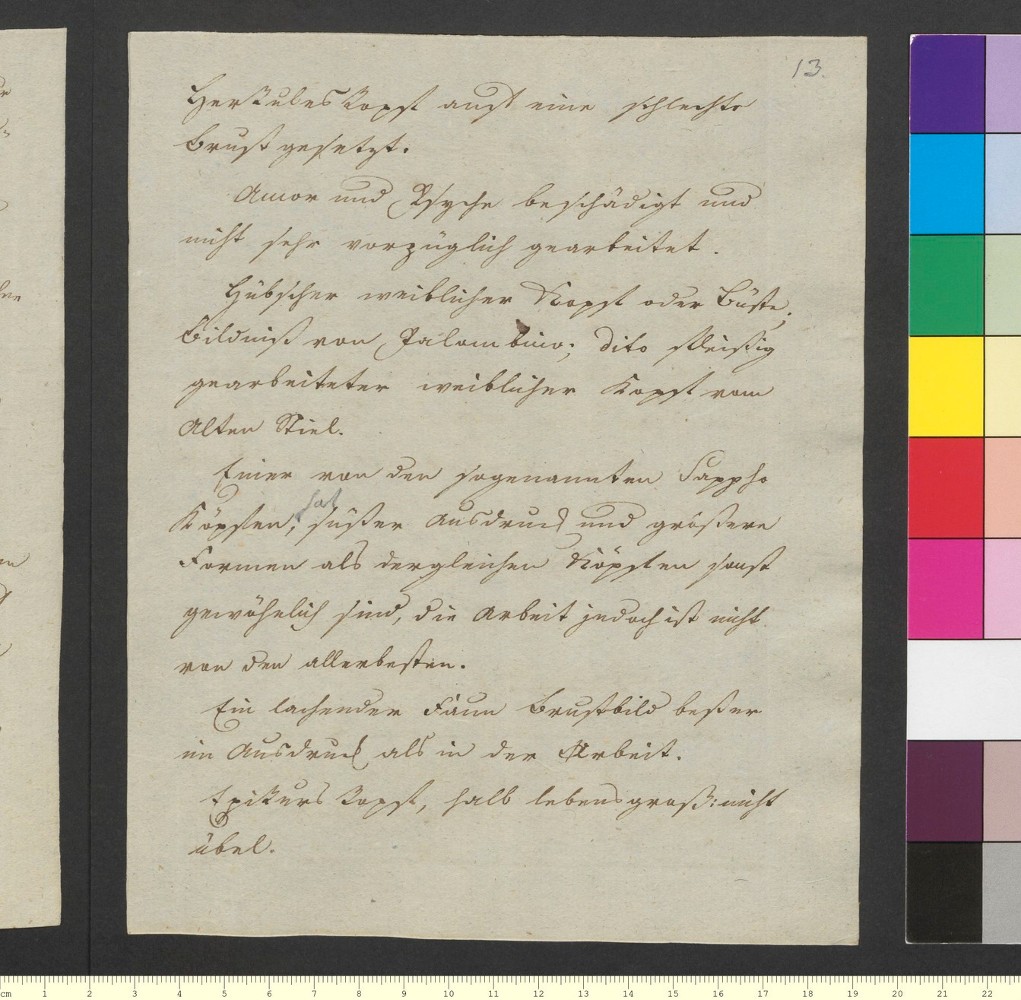 13.
Herkules Kopf auf eine schlechte
Brust gesetzt.
Amor und Psyche beschädigt und
nicht sehr vorzüglich gearbeitet.
Hübscher weiblicher Kopf oder Büste;
Bildniß von Palombino; dito fleißig
gearbeiteter weiblicher Kopf vom
Alten Stiel.
Einer von den sogenannten Sappho
hat
Köpfen, süßer Ausdruck und größere
Formen als dergleichen Köpfen sonst
gewöhnlich sind, die Arbeit jedoch ist nicht
von den allerbesten.
Ein lachender Faun Brustbild beßer
im Ausdruck als in der Arbeit.
Epikurs Kopf, halb lebensgroß: nicht
übel.